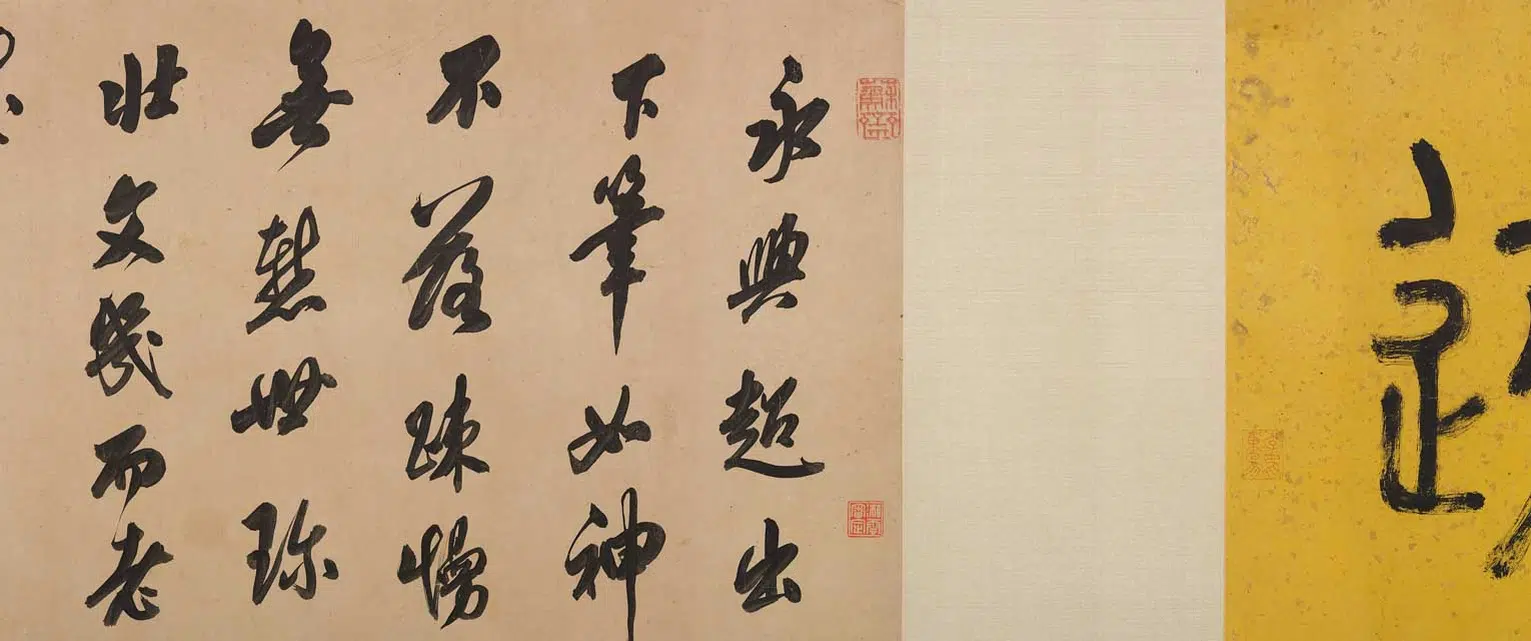 永興超出
下筆如神
不落疎慢
無慙世珍
壯文幾而老